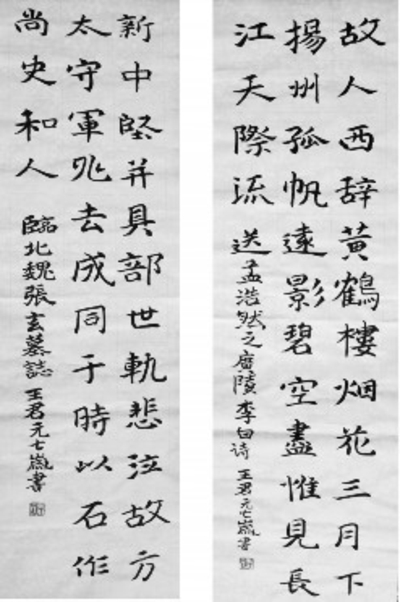 故人西辞黄鶴樓烟花三月下
揚州孤帆遠影碧空盡惟見長
江天際流
送孟浩然之廣陵李白诗王君元七嵗書
新中堅并具部世軌悲泣故方
太守軍兆去成同于時以石作
尚史和人
臨北魏張玄墓誌王君元七嵗書